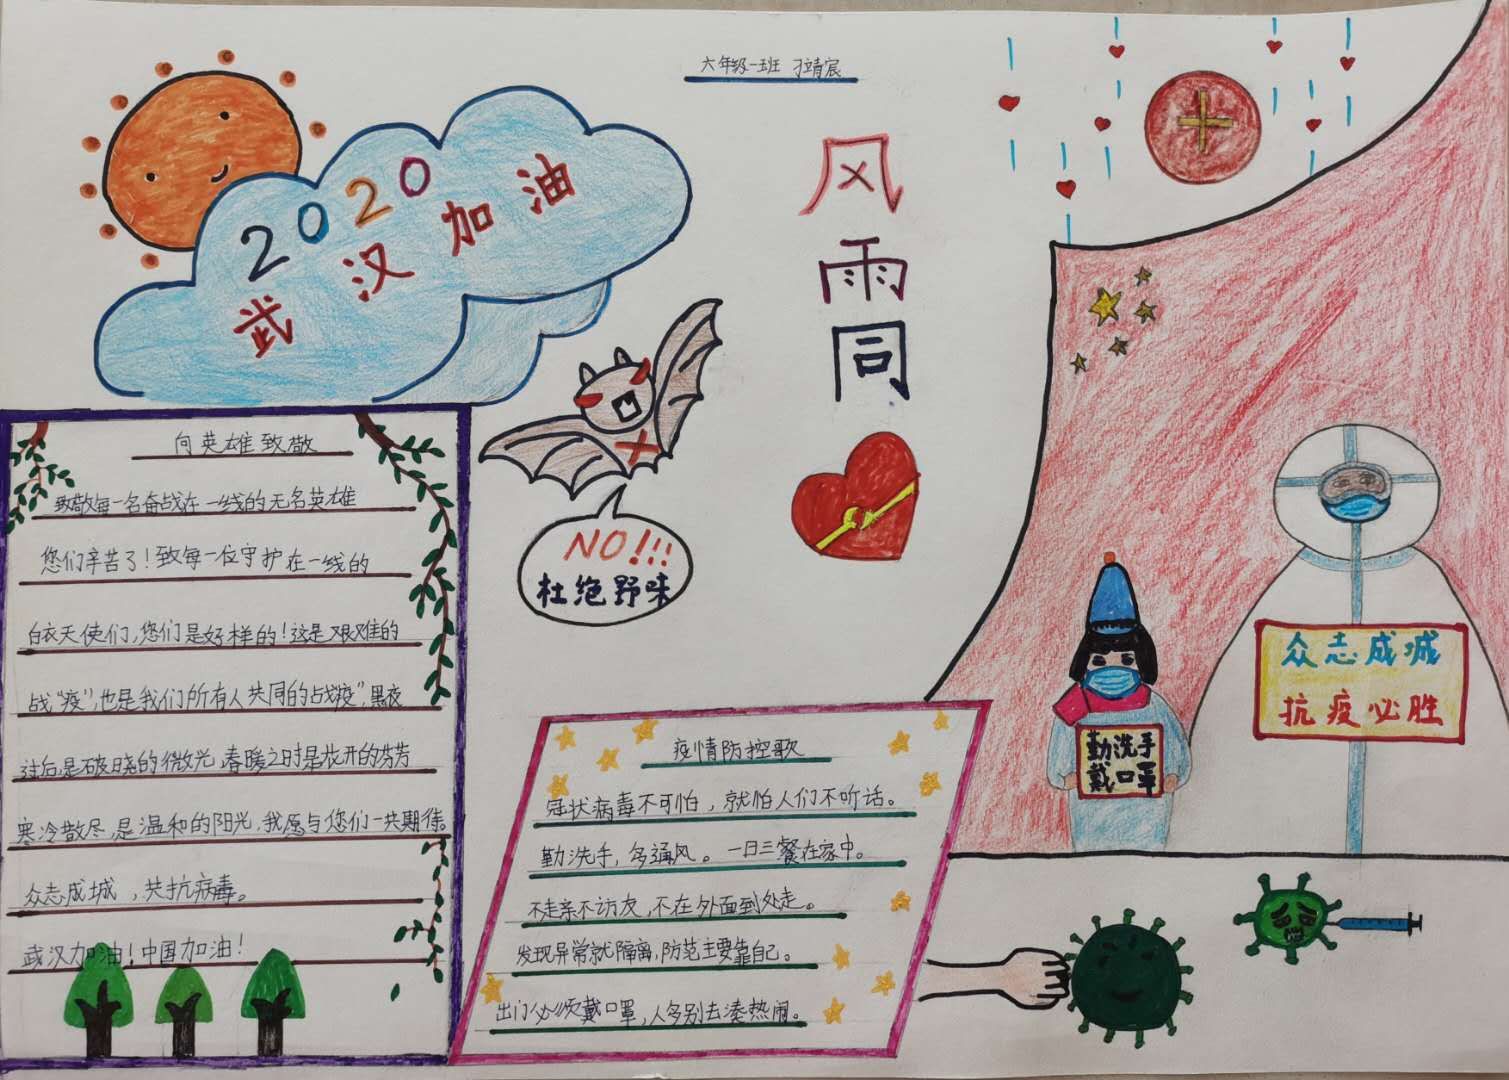 六年级一班 刁靖宸
2020
武汉加油
风雨同
NO!!!
杜绝野味
向英雄致敬
致敬每一名奋战在一线的无名英雄
您们辛苦了!致每一位守护在一线的
白衣天使们,您们是好样的!这是艰难的
战“疫”,也是我们所有人共同的战“疫”,黑夜
过后,是破晓的微光,春暖之时是花开的芬芳
寒冷散尽,是温和的阳光,我愿与您们一共期待。
众志成城,共抗病毒。
武汉加油!中国加油!
疫情防控歌
冠状病毒不可怕,就怕人们不听话。
勤洗手,多通风。一日三餐在家中。
不走亲不访友,不在外面到处走。
发现异常就隔离,防范主要靠自己。
出门必须戴口罩,人多别去凑热闹。
勤洗手
戴口罩
众志成城
抗疫必胜